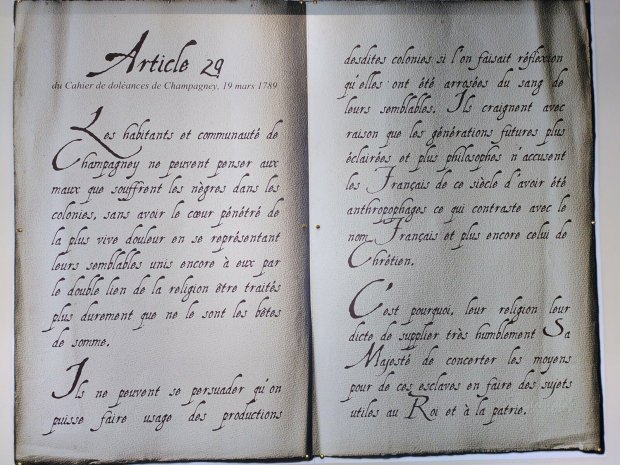 Article 29
du Cahier de doléances de Champagney, 19 mars 1789
Les habitants et communauté de
Champagney ne peuvent penser aux
maux que souffrent les nègres dans les
colonies, sans avoir le cœur pénétré de
la plus vive douleur en se représentant
leurs semblables unis encore à eux par
le double lien de la religion être traités
plus durement que ne le sont les bêtes
de somme.
Ils ne peuvent se persuader qu'on
puisse faire usage des productions
desdites colonies si l'on faisait réflexion
qu'elles ont été arrosées du sang de
leurs semblables. Ils craignent avec
raison que les générations futures plus
éclairées et plus philosophes n'accusent
les Français de ce siècle d'avoir été
anthropophages ce qui contraste avec le
nom Français et plus encore celui de
Chrétien.
C'est pourquoi, leur religion leur
dicte de supplier très humblement Sa
Majesté de concerter les moyens
pour de ces esclaves en faire des sujets
utiles au Roi et à la patrie.